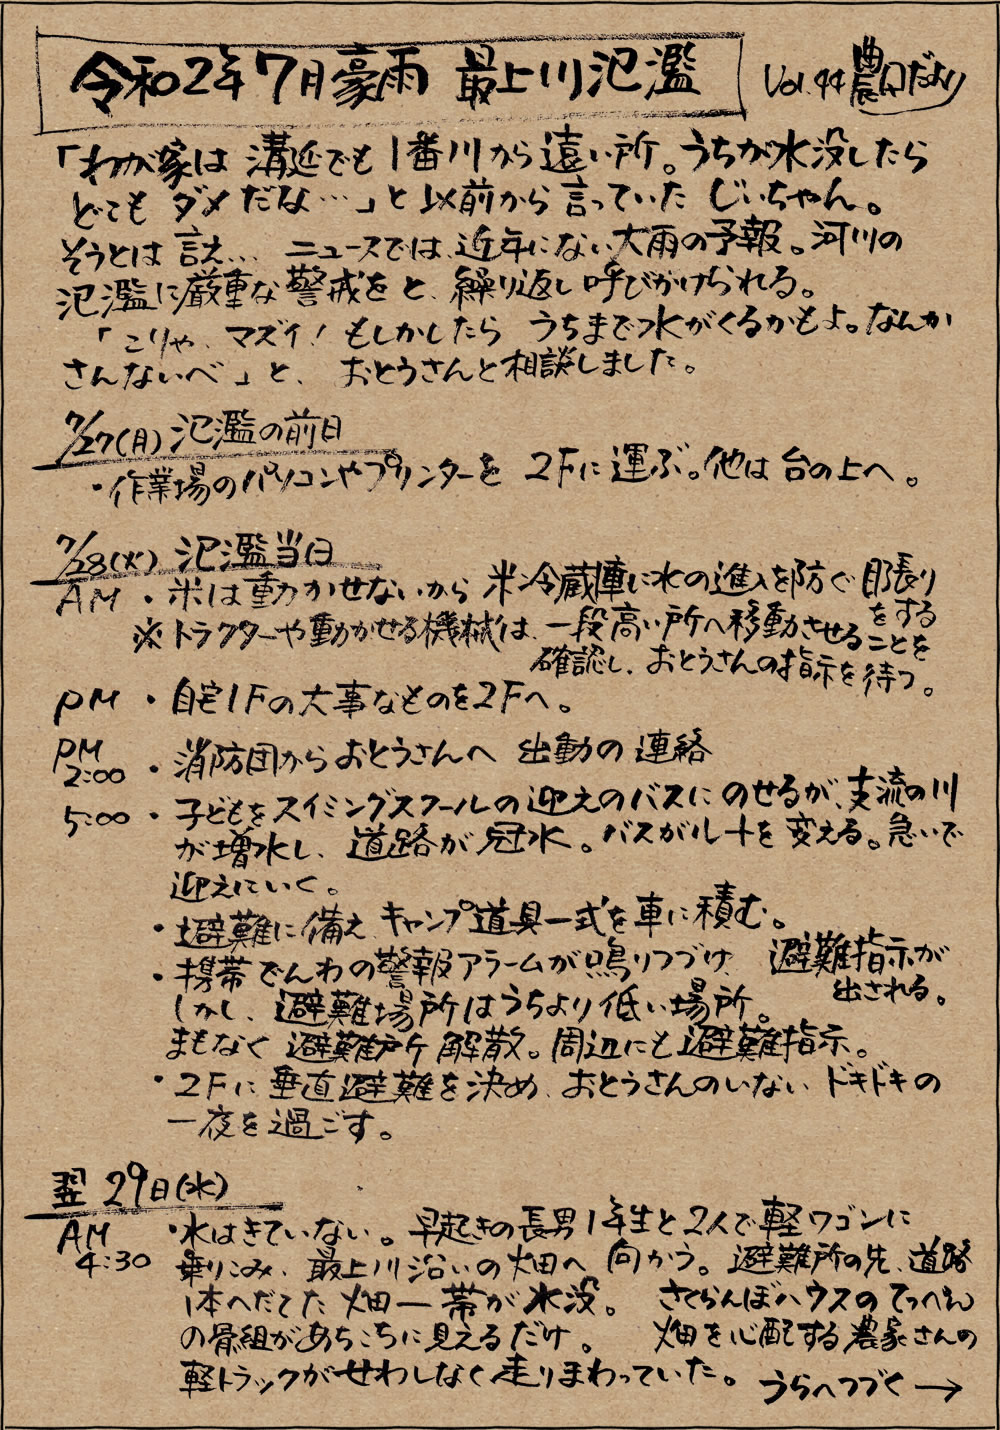 令和2年7月豪雨 最上川氾濫
Vol.44 農園だより
「わが家は 溝延でも 1番川から遠い所。うちが水没したら
どこもダメだな…」と以前から言っていた じいちゃん。
そうとは言え… ニュースでは、近年にない大雨の予報。河川の
氾濫に厳重な警戒をと、繰り返し呼びかけられる。
「こりゃ、マズイ！もしかしたら うちまで水がくるかもよ。なんか
さんないべ」と、おとうさんと相談しました。
7/27(月) 氾濫の前日
・作業場のパソコンやプリンターを 2Fに運ぶ。他は台の上へ。
7/28(火) 氾濫当日
AM ・米は動かせないから 米冷蔵庫に水の進入を防ぐ目張り
をする
※トラクターや動かせる機械は、一段高い所へ移動させることを
確認し、おとうさんの指示を待つ。
PM ・自宅1Fの大事なものを2Fへ。
PM
2:00 ・消防団からおとうさんへ 出動の連絡
5:00 ・子どもをスイミングスクールの迎えのバスにのせるが、支流の川
が増水し、道路が冠水。バスがルートを変える。急いで
迎えにいく。
・避難に備え キャンプ道具一式を車に積む。
・携帯でんわの警報アラームが鳴りつづけ、避難指示が
出される。
しかし、避難場所はうちより低い場所。
まもなく 避難所 解散。周辺にも避難指示。
・2Fに垂直避難を決め、おとうさんのいない ドキドキの
一夜を過ごす。
翌 29日(水)
AM
4:30 ・水はきていない。早起きの長男1年生と2人で軽ワゴンに
乗りこみ、最上川沿いの畑へ 向かう。避難所の先、道路
1本へだてた 畑一帯が水没。 さくらんぼハウスのてっぺん
の骨組があちこちに見えるだけ。 畑を心配する農家さんの
軽トラックがせわしなく走りまわっていた。 うらへつづく→